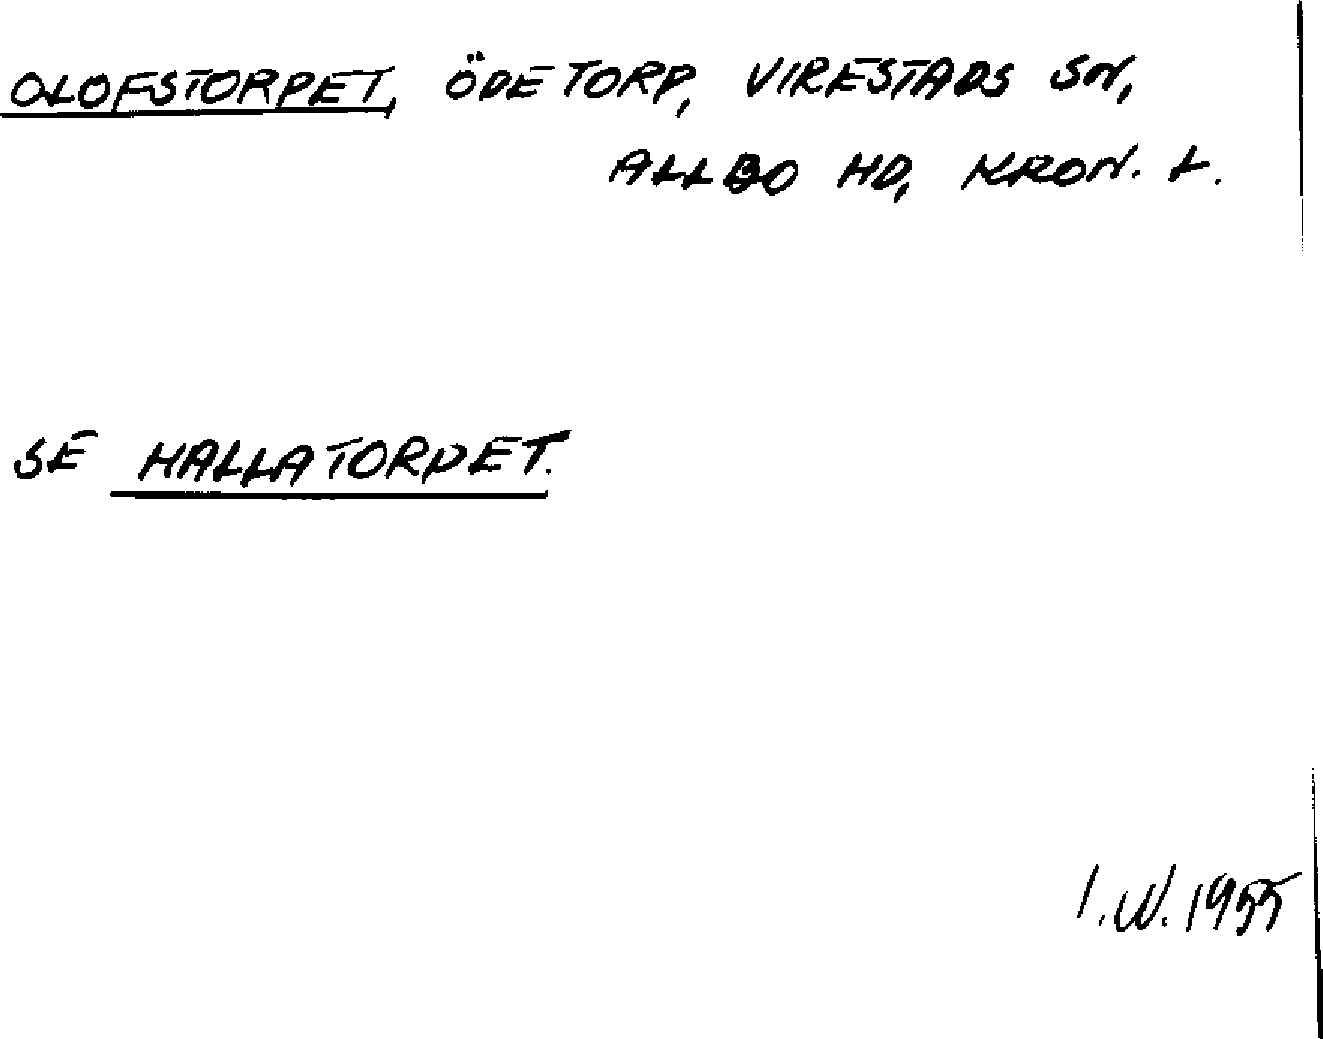 OLOFSTORPET, ÖDETORP, VIRESTADS SN,
ALLBO HD, KRON. L.
SE HALLATORPET.
I.W. 1955